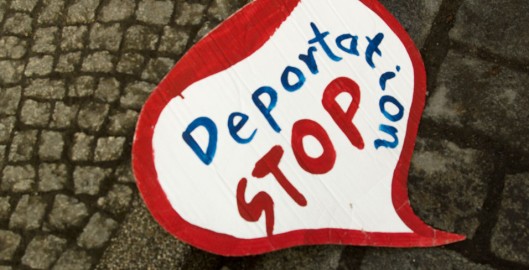 Deportation
STOP